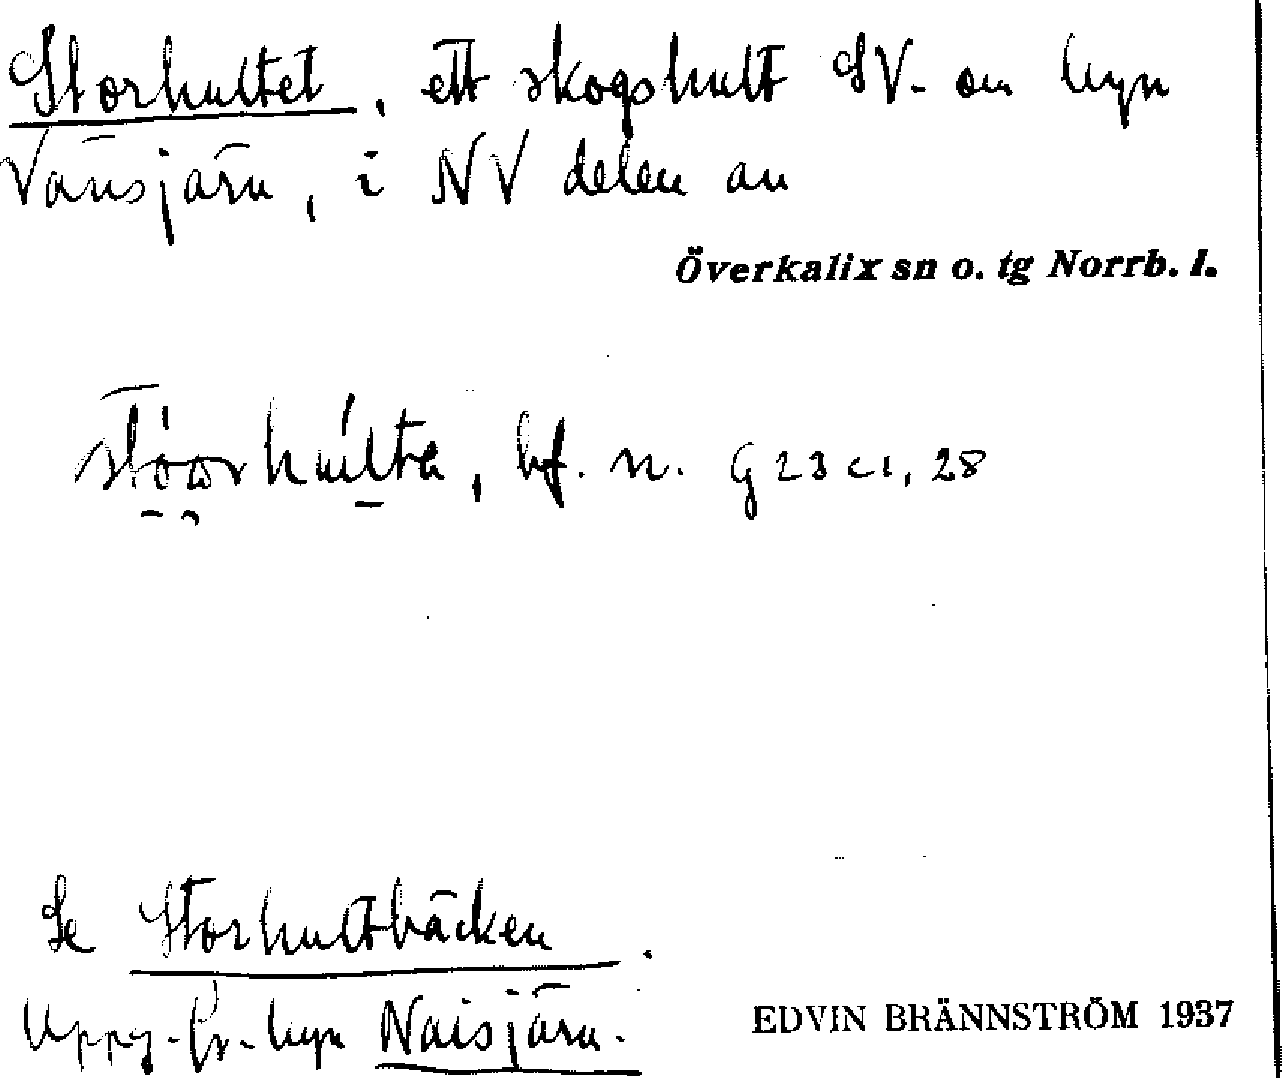 Storhultet, ett skogshult SV. om byn
Vänsjärn, i NV delen av
Överkalix sn o. tg Norrb. l.
bf. n. G 23 c1, 28
Se Storhultbäcken.
Uppg. fr. byn Naisjärn.
EDVIN BRÄNNSTRÖM 1937